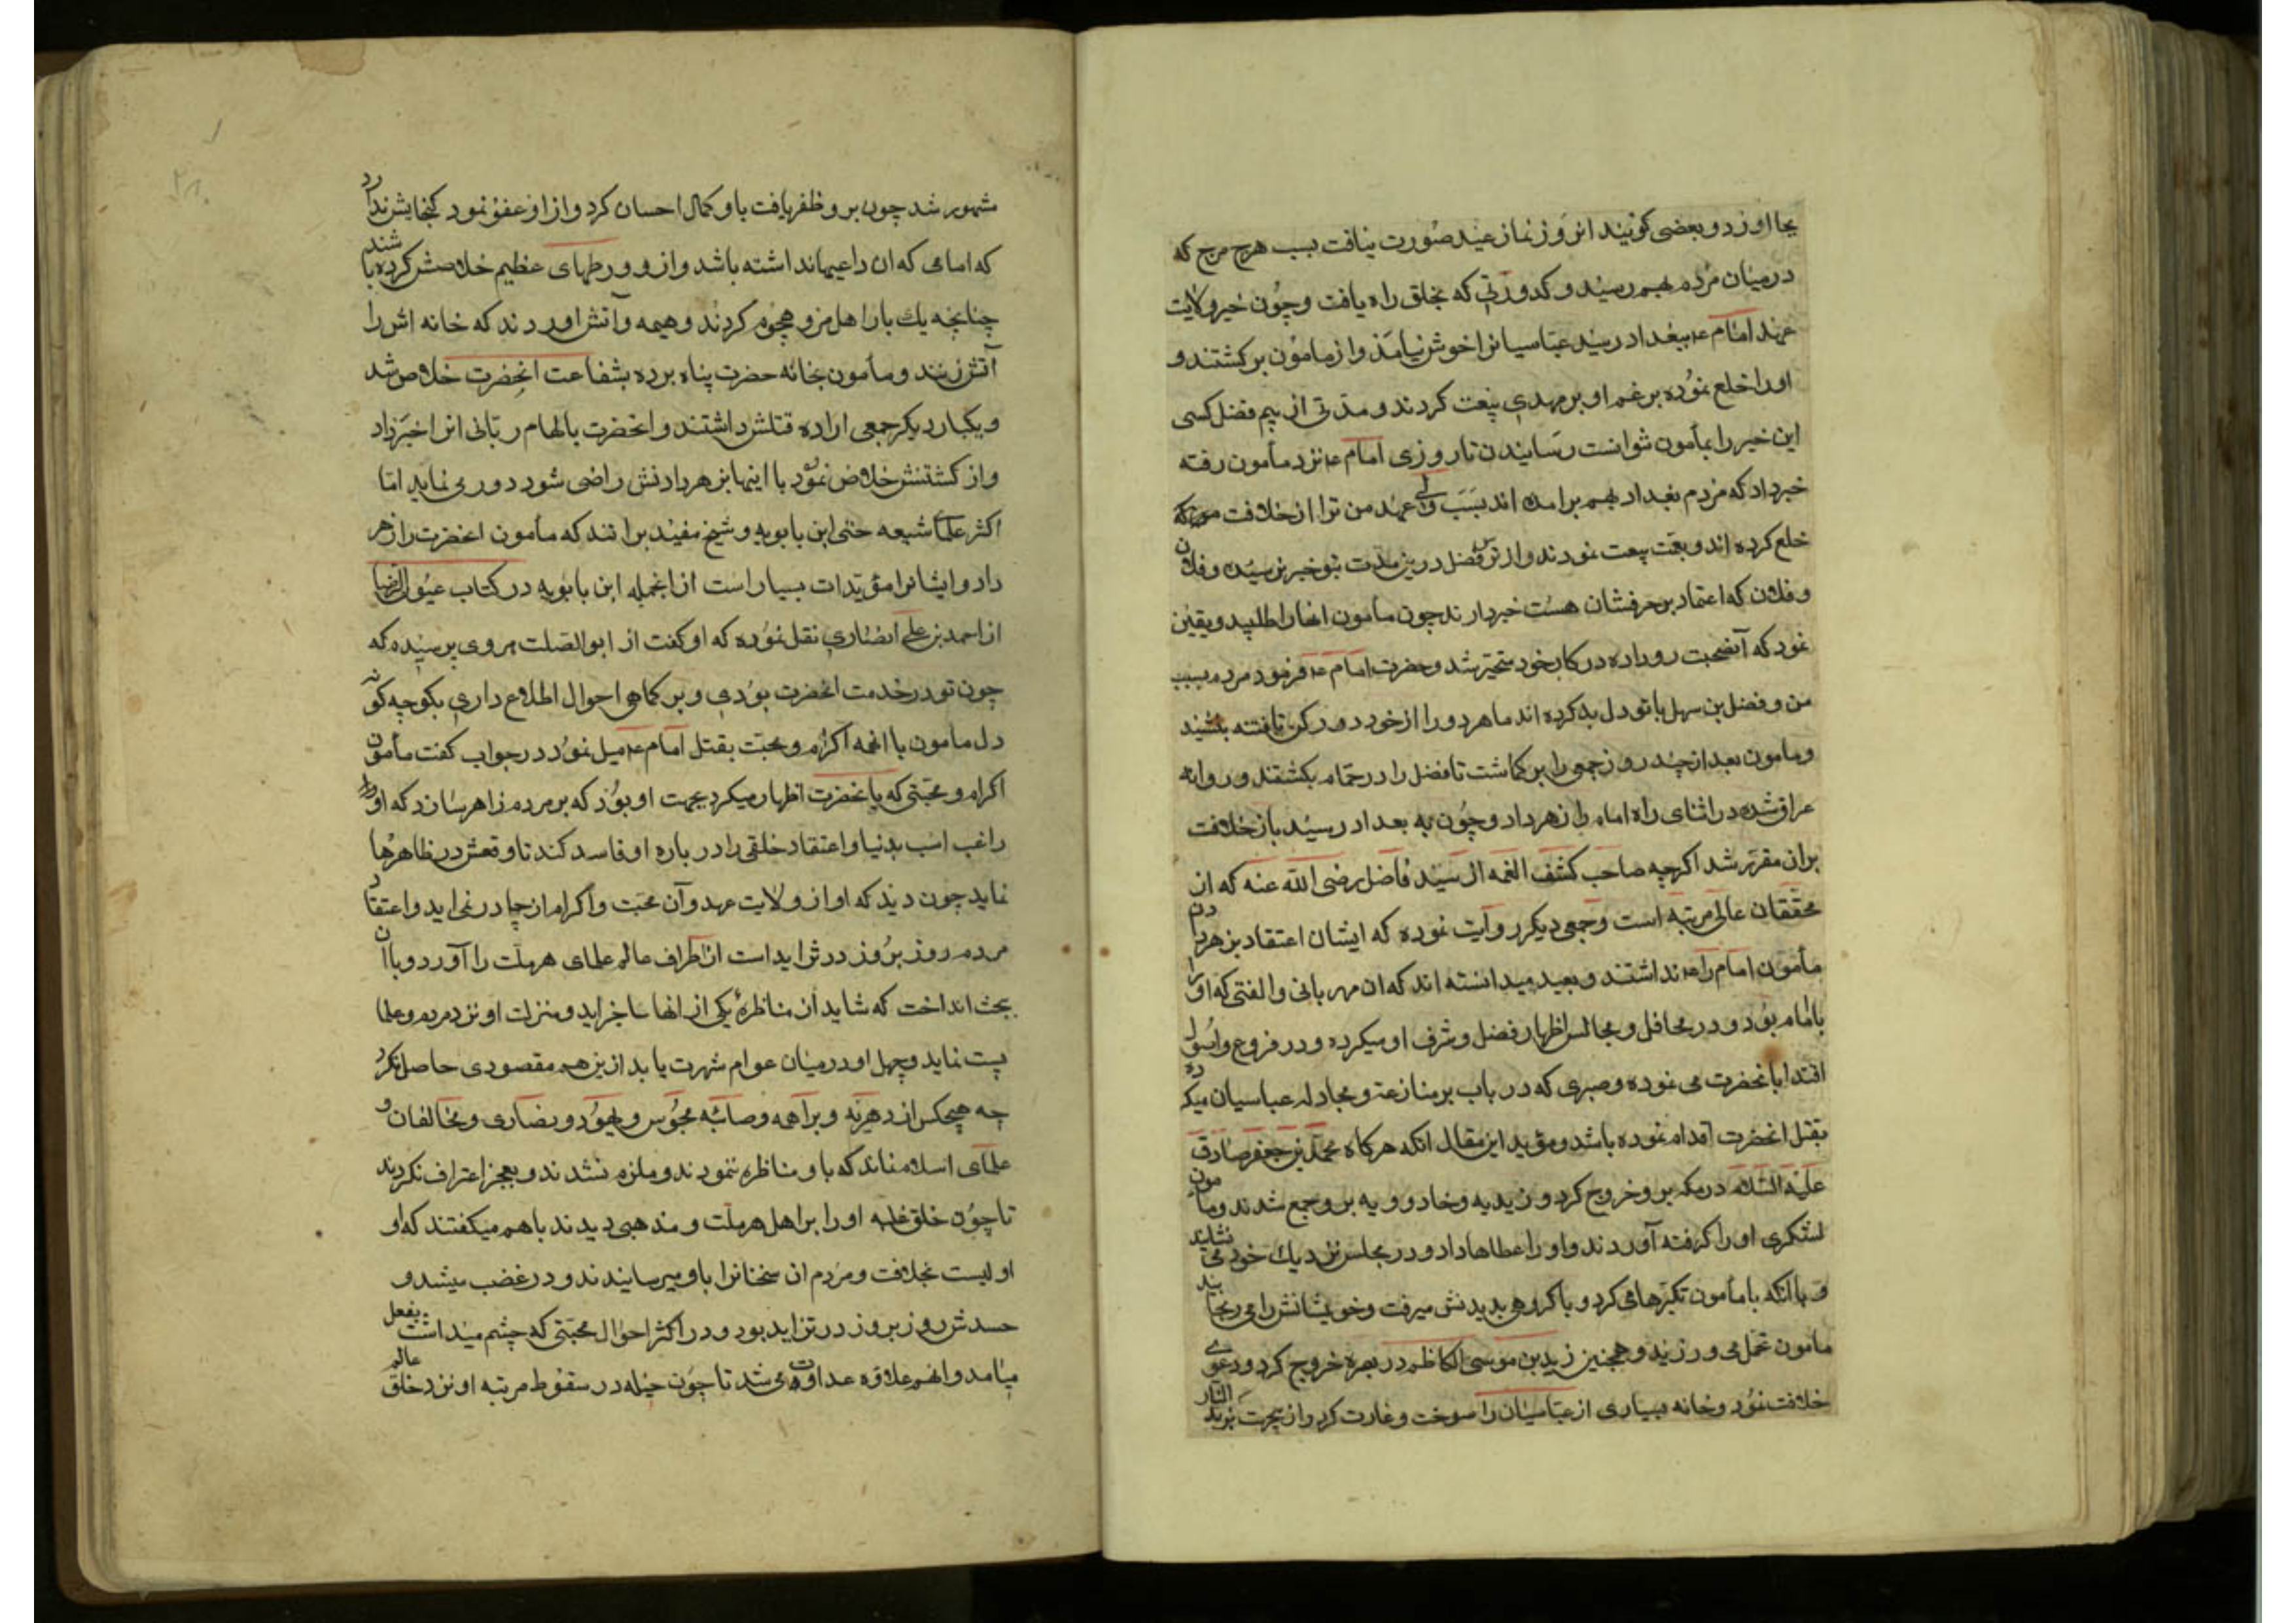 بجا اورد و بعضی کویند انروز نماز عید صورت نیافت بسبب هرج مرج که
در میان مردم بهم رسید و کدورتی که بخلق راه یافت و چون خبر ولایت
عهد امام ع ببغداد رسید عباسیانرا خوش نیامد و از مامون برکشتند و
او را خلع نموده برغم او بر مهدی بیعت کردند و مدتی از بیم فضل کسی
این خبر را بمأمون نتوانست رسانیدن تا روزی امام ع نزد مأمون رفته
خبر داد که مردم بغداد بهم برامده اند بسبب ولی عهد من ترا از خلافت
خلع کرده اند و بیعت نمودند و از ترس فضل درین مدت بتو خبر نرسیده و فلان
و فلان که اعتماد بر حرفشان هست خبر دارند چون مأمون انها را طلبید و یقین
نمود که آنصحبت رو داده در کار خود متحیر شد و حضرت امام ع فرمود مردم بسبب
من و فضل بن سهل با تو دل بد کرده اند ما هر دو را از خود دور کن تا فتنه بنشیند
و مامون بعد از چند روز جمعی را بر کماشت تا فضل را در حمام بکشتند و روانه
عراق شده در اثنای راه امام را زهر داد و چون به بغداد رسید باز خلافت
بران مقرر شد اکرچه صاحب کشف الغمه ال سید فاضل رضی الله عنه که از
محققان عالی مرتبه است و جمعی دیکر روایت نموده که ایشان اعتقاد بزهر دادن
مأمون امام را ع نداشتند و بعید میدانسته اند که ان مهربانی و الفتی که او را
با امام بود و در محافل و مجالس اظهار فضل و شرف او میکرده و در فروع و اصول
اقتدا بانحضرت می نموده و صبری که در باب بر منازعه و مجادله عباسیان میکرده
بقتل انحضرت اقدام نموده باشد و مؤید این مقال انکه هرکاه محمد بن جعفر صادق
علیه السلام در مکه برو خروج کرد و زیدیه و جارودیه برو جمع شدند و مأمون
لشکری او را کرفته آوردند و او را عطاها داد و در مجلس نزدیک خود می نشانید
و با انکه با مأمون تکبرها می کرد و باکروهی بدیدنش میرفت و خویشانش را می رنجانید
مامون تحمل می ورزید و همچنین زید بن موسی الکاظم در بصره خروج کرد و دعوی
خلافت نمود و خانه بسیاری از عباسیان را سوخت و غارت کرد و ازین جهت بزید النار
مشهور شد چون برو ظفر یافت باو کمال احسان کرد و از او عفو نمود کنجایش ندارد
که امامی که ان داعیها نداشته باشد و از و ورطهای عظیم خلاصش کرده باشد
چنانچه یک بار اهل مرو هجوم کردند و هیمه و آتش اوردند که خانه اش را
آتش زنند و مأمون بخانه حضرت پناه برده بشفاعت انحضرت خلاص شد
و یکبار دیکر جمعی اراده قتلش داشتند و انحضرت بالهام ربانی انرا خبر داد
و از کشتنش خلاص نمود با اینها بزهر دادنش راضی شود دوری نماید اما
اکثر علمآ شیعه حتی ابن بابویه و شیخ مفید برانند که مأمون انحضرت را زهر
داد و ایشانرا مؤیدات بسیار است از انجمله ابن بابویه در کتاب عیون الرضا
از احمد بن علی انصاری نقل نموده که او کفت از ابوالصلت هروی پرسیده که
چون تو در خدمت انحضرت بودی و بر کماهی احوال اطلاع داری بکو چه کونه
دل مامون با انهمه اکرام و محبت بقتل امام ع میل نمود در جواب کفت مأمون
اکرام و محبتی که با نحضرت اظهار میکرد بجهت او بود که بر مردم ظاهر سازد که او را
راغب است بدنیا و اعتقاد خلقی را در باره او فاسد کند تا وقعش در ظاهرها
نماید چون دید که او از ولایت عهد و آن محبت و اکرام از جا در نمی اید و اعتقاد
مردم روز بروز در تزاید است از اطراف عالم علمای هر ملت را آورد و با ان
بحث انداخت که شاید از مناظرهٔ یکی از انها عاجز اید و منزلت او نزد مردم و علما
پست نماید و جهل او در میان عوام شهرت یابد ازین هم مقصودی حاصل نکرد
چه هیچکس از دهریه و براهمه و صائبه مجوس و یهود و نصاری و مخالفان و
علمای اسلام نماند که با و مناظره ننمودند و ملزم نشدند و بعجز اعتراف نکردند
تا چون خلق غلبه او را بر اهل هر ملت و مذهبی دیدند با هم میکفتند که او
اولیست بخلافت و مردم ان سخنانرا باو میرسانیدند و در غضب میشد و
حسدش روز بروز در تزاید بود و در اکثر احوال محبتی که چشم میداشت بفعل
میامد و انهم علاقه عداوت می شد تا چون حیله در سقوط مرتبه او نزد خلق عالم